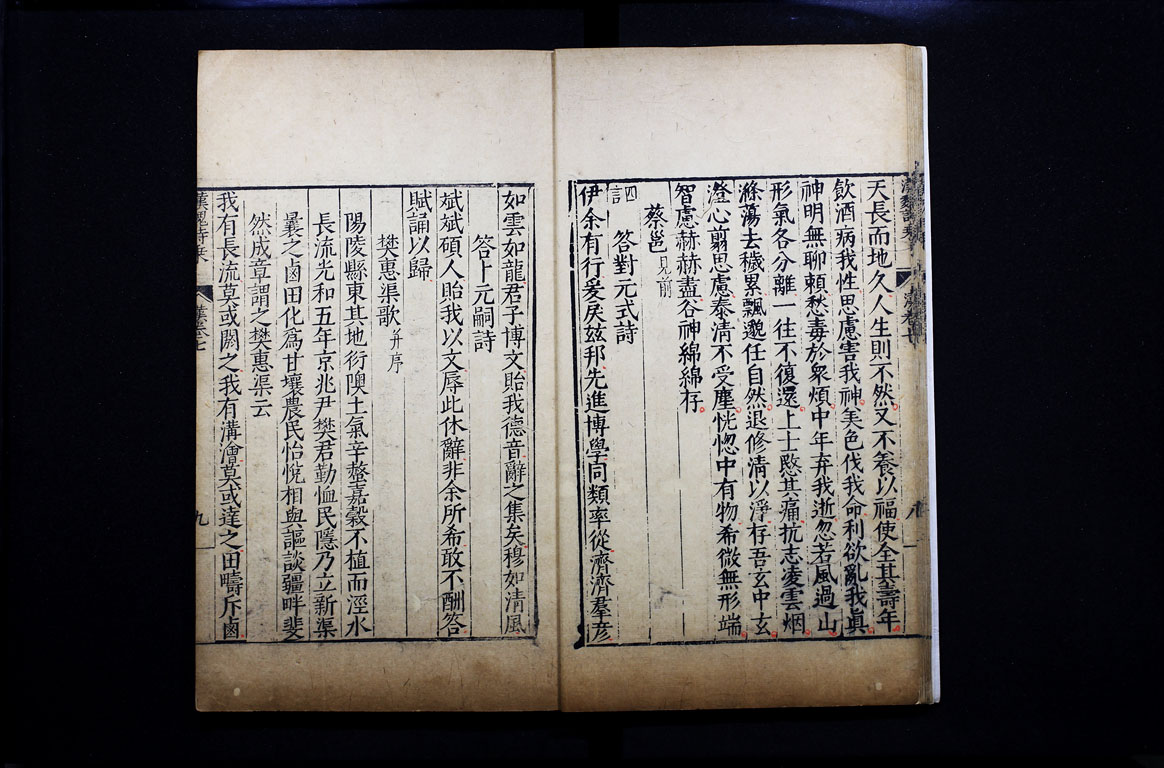 天長而地久人生則不然又不養以福使全其壽年
飲酒病我性思慮害我神美色伐我命利欲亂我眞
神明無聊賴愁毒於衆煩中年弃我逝忽若風過山
形氣各分離一往不復還上士愍其痛抗志凌雲烟
滌蕩去穢累飄邈任自然退修清以淨存吾玄中玄
澄心翦思慮泰清不受塵恍惚中有物希微無形端
智慮赫赫盡谷神綿綿存
蔡邕見前
四言
答對元式詩
伊余有行爰戾茲邦先進博學同類率從濟濟羣彥
如雲如龍君子博文貽我德音辭之集矣穆如清風
答卜元嗣詩
斌斌碩人貽我以文辱此休辭非余所希敢不酬答
賦誦以歸
樊惠渠歌并序
陽陵縣東其地衍隩土氣辛螫嘉穀不植而涇水
長流光和五年京兆尹樊君勤恤民隱乃立新渠
曩之鹵田化爲甘壤農民怡悅相與謳談疆畔斐
然成章謂之樊惠渠云
我有長流莫或閼之我有溝澮莫或達之田疇斥鹵
漢魏詩乘
漢卷七
九